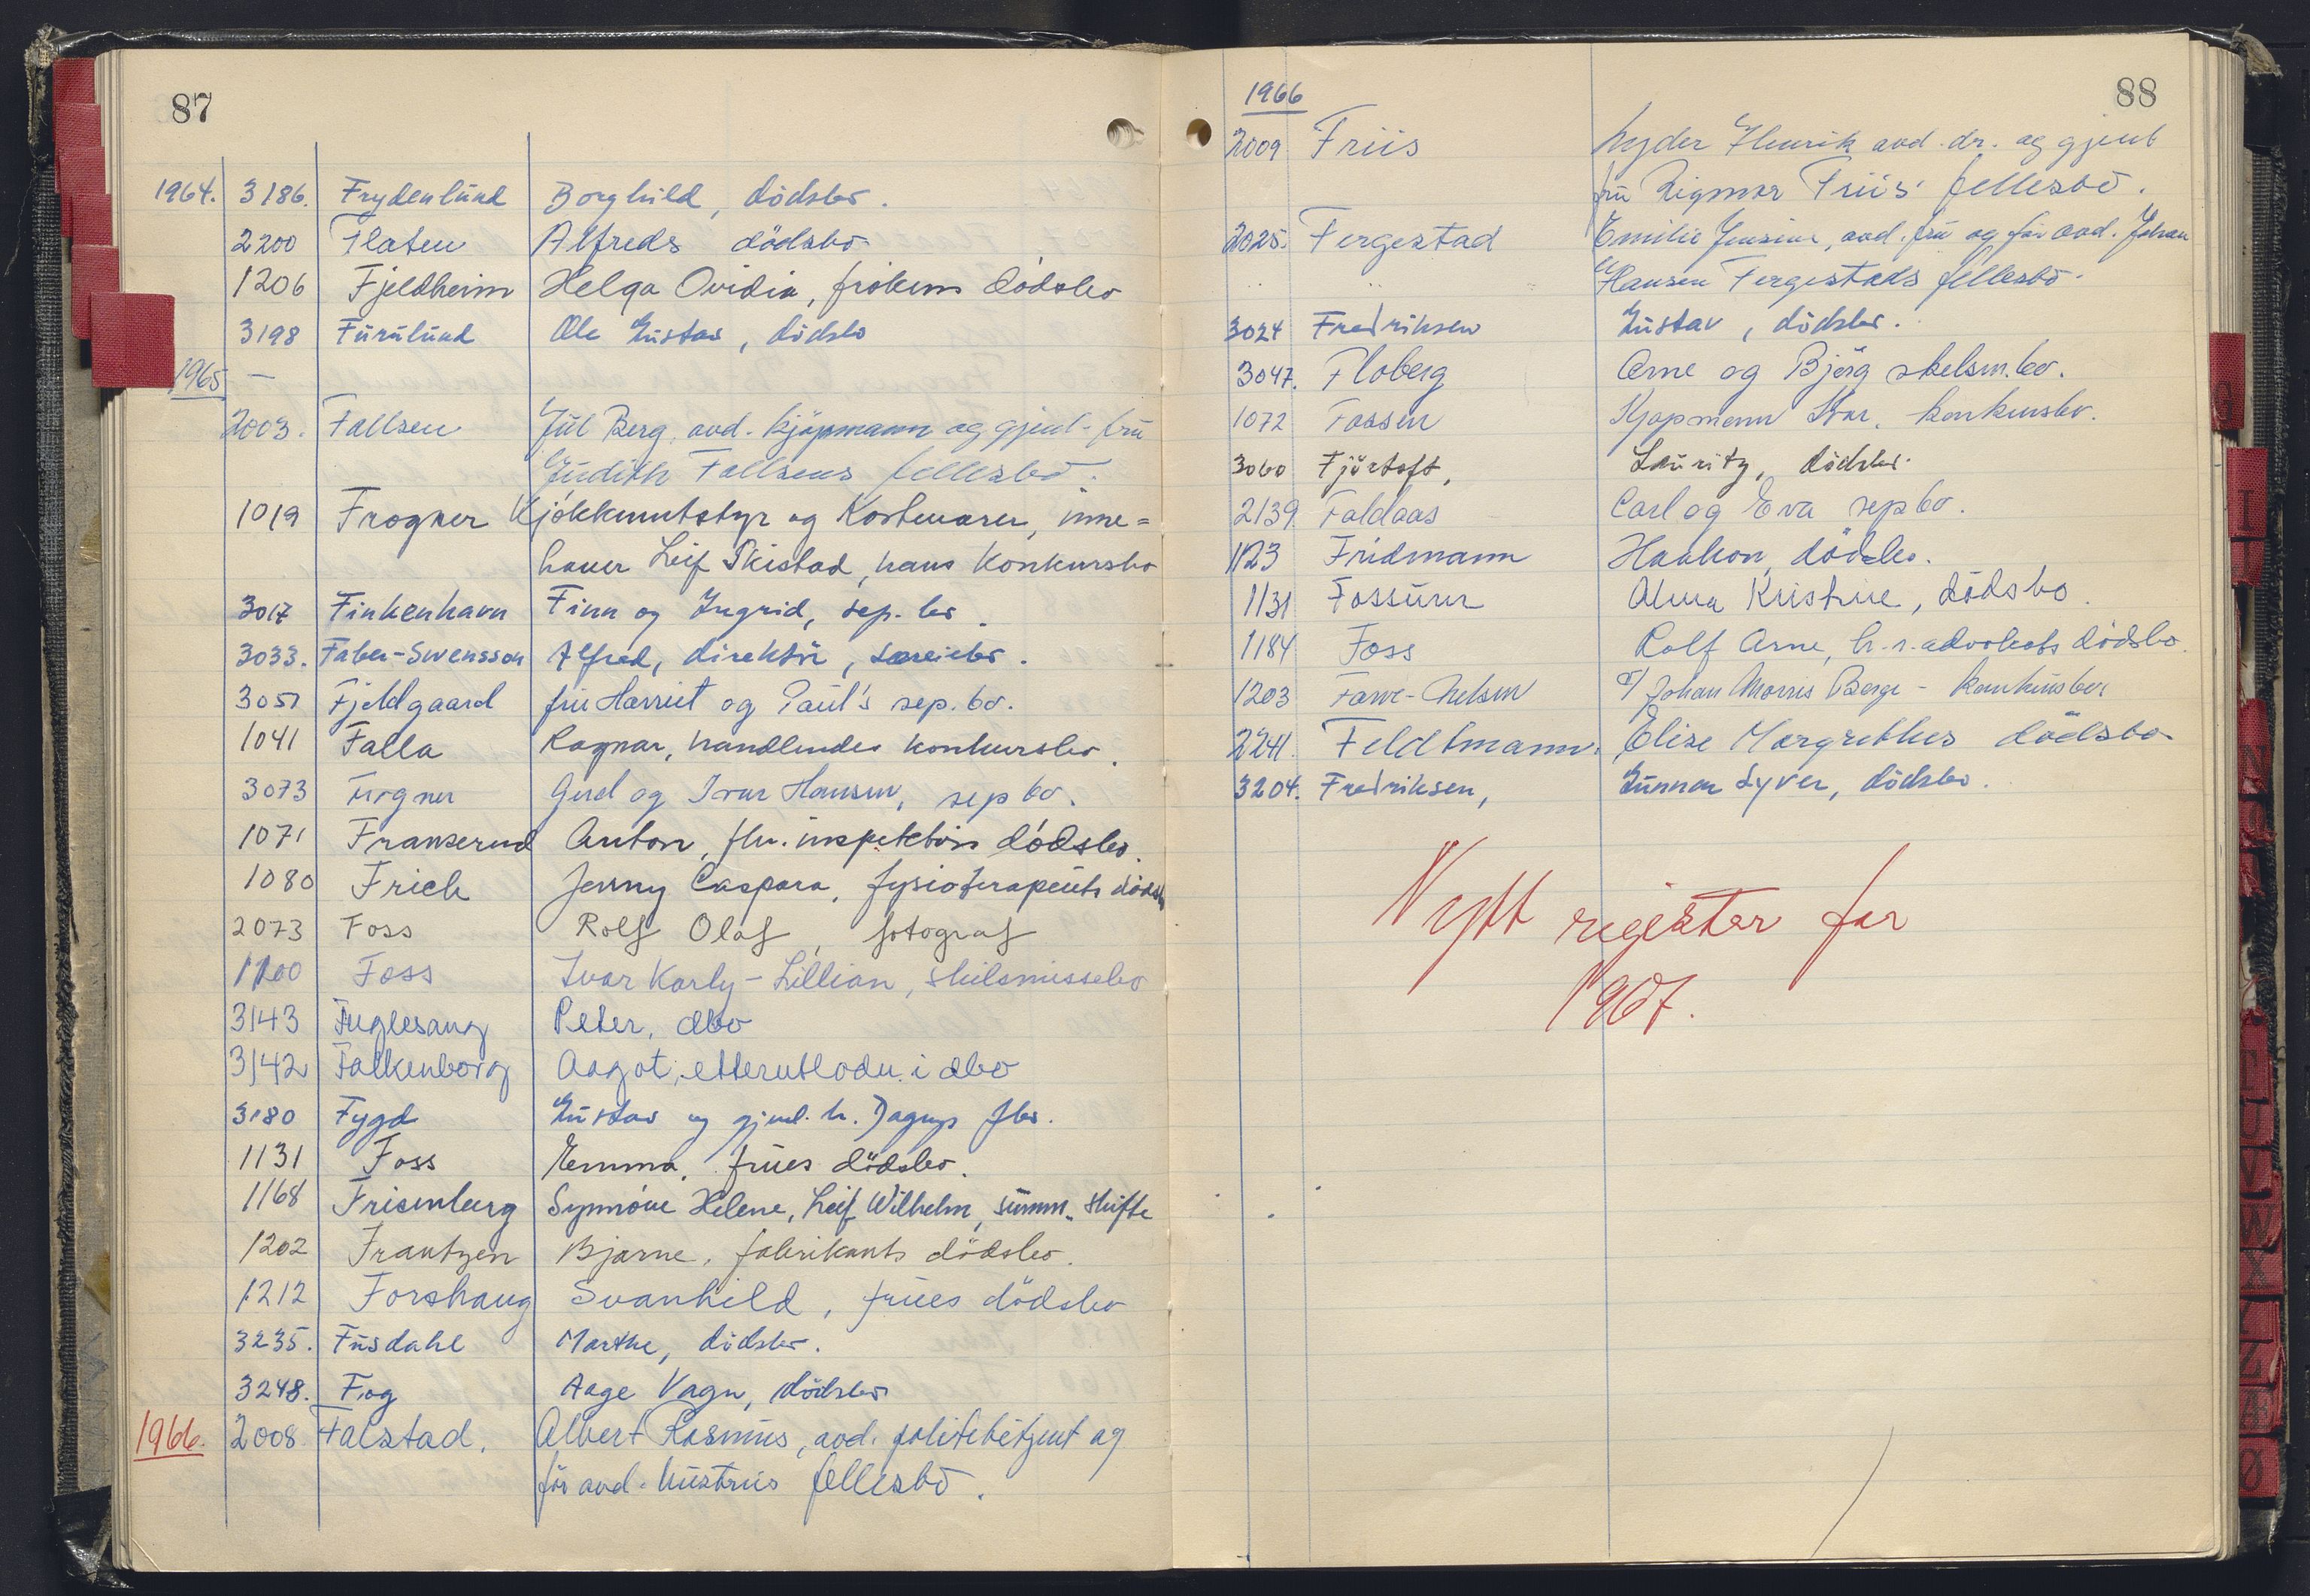 87
1964. 3186. Frydenlund Borghild, dödsbo.
2200 Platen Alfreds dödsbo
1206 Fjeldheim Helga Ovidia, frökens dödsbo
3198 Furulund Ole Gustav, dödsbo
1965 —
2003. Fallsen Jul Berg, avd. kjöpmann og gjenl. fru
Judith Fallsens fellesbo.
1019 Frogner Kjökkenutstyr og Kostevarer, inne=
haver Leif Skistad, hans Konkursbo
3017 Finkenhavn Finn og Ingrid, sep. bo.
3033. Faber-Swensson Alfred, direktör,
3051 Fjeldgaard fru Harriet og Paul's sep. bo.
1041 Falla Ragnar, handlendes konkursbo.
3073 Frogner Gerd og Ivar Hansen, sep bo.
1071 Franserud Anton, fhv. inspektörs dödsbo.
1080 Frich Jenny Caspara, fysioterapeuts dödsb
2073 Foss Rolf Olaf, fotograf
1100 Foss Ivar Karly - Lillian, skilsmissebo
3143 Fuglesang Peter, dbo
3142 Falkenborg Aagot, etterutlodn. i dbo
3180 Fygd Gustav og gjenl. h. Dagnys fbo.
1131 Foss Emma, frues dödsbo.
1168 Frisenberg Synnöve Helene, Leif Wilhelm, summ. skifte
1202 Frantzen Bjarne, fabrikants dödsbo.
1212 Forshaug Svanhild, frues dödsbo
3235. Fusdahl Marthe, dödsbo.
3248. Fog Aage Vagn, dödsbo
1966. 2008 Falstad. Albert Rasmus, avd. politibetjent og
för avd. hustrus fellesbo.
88
1966
2009 Friis Lyder Henrik avd. dr. og gjenl
fru Zigmar Friis' fellesbo.
2025. Fergestad Emilie Jensine, avd. fru og för avd. Johan
Hansen Fergestads fellesbo.
3024 Fredriksen Gustav, dödsbo.
3047. Floberg Arne og Bjørg skelsm.bo.
1072 Fossen Kjøpmann Ivar, konkursbo.
3060 Fjörtoft, Lauritz, dödsbo.
2139 Faldaas Carl og Eva sepbo.
1123 Fridmann Haakon, dödsbo.
1131 Fossum Alma Kristine, dödsbo.
1184 Foss Rolf Arne, h.r.advokats dödsbo.
1203 Farve-Nelsen v/ Johan Morris Berge - konkursbo
2241. Feldtmann. Elise Margrethes dödsbo
3204. Fredriksen, Gunnar Syver, dödsbo.
Nytt register for
1967.
I
T
U
V
W
X
Y
Z
Æ
Ø